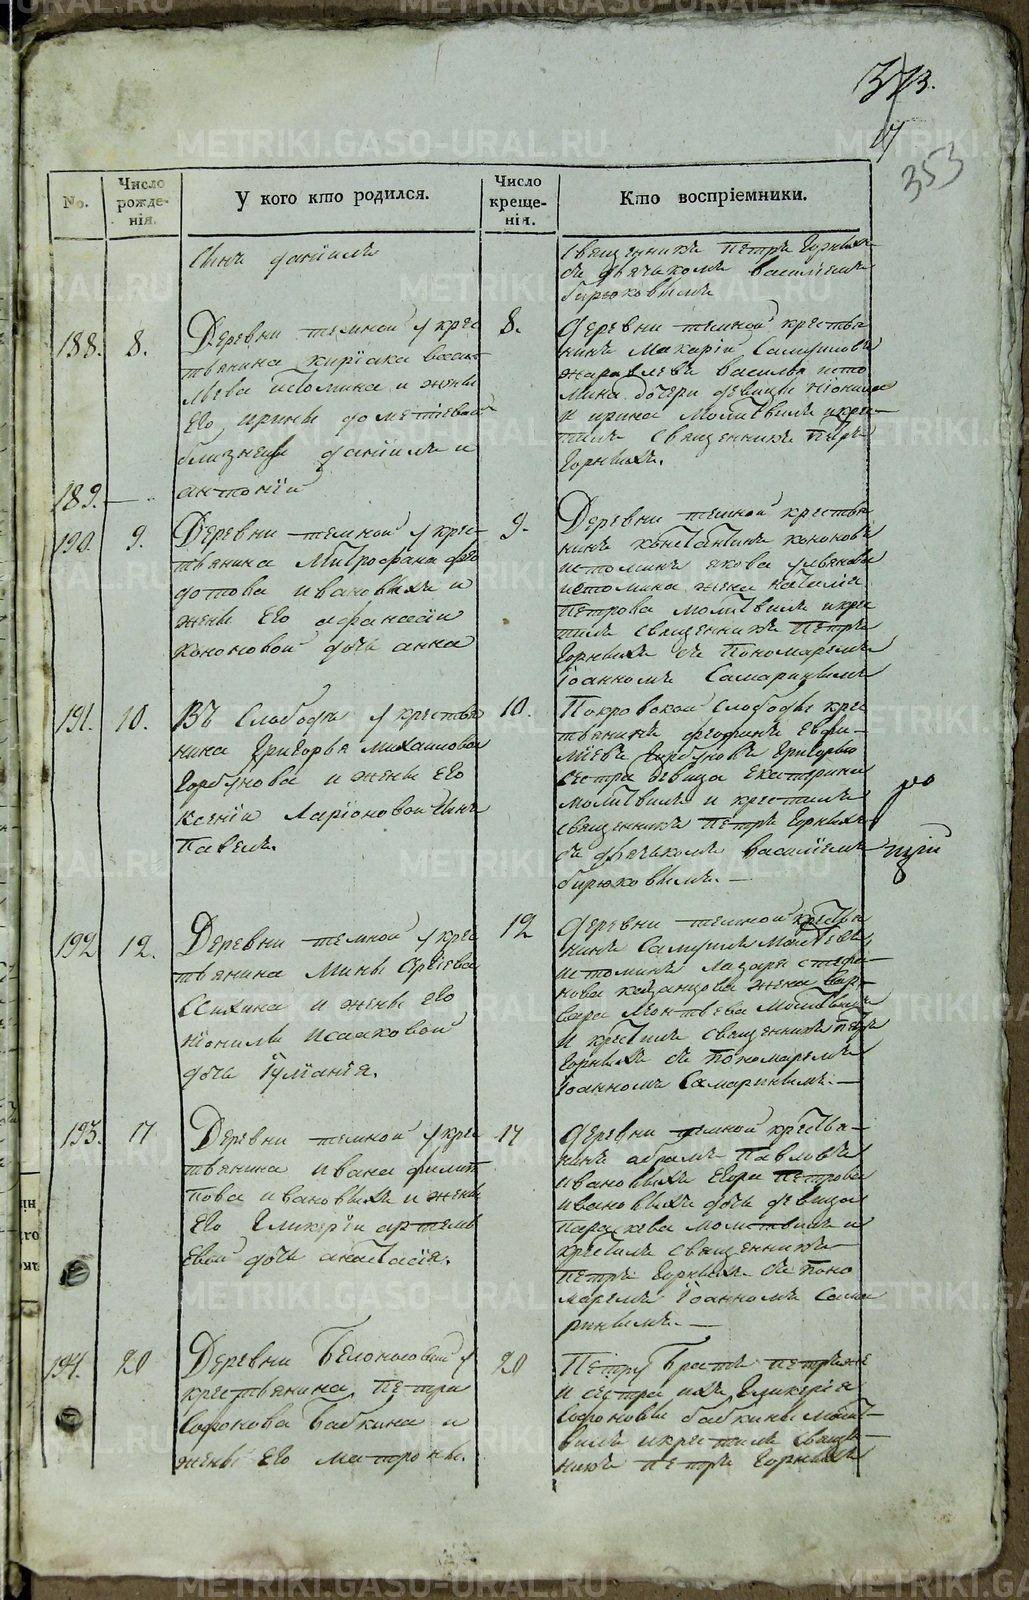 373.
353
No.
Число рожде-нія.
У кого кто родился.
Число креще-нія.
Кто воспріемники.
сынъ даніилъ
священникъ петръ Горныхъ
съ дьячькомъ василіемъ
бирюковымъ
188. 8.
Деревни темной у крес
тьянина киріака васи
льева истомина и жены
Его ирины дометіевой
близнецы даніилъ и
189. —
антоній
8.
деревни темной крестья
нинъ Макарій Самуиловъ
журавлевъ василья исто
мина дочери девицы
и ирина молитвилъ и кре-
тилъ священникъ Петръ
Горныхъ.
190. 9.
Деревни темной у крес-
тьянина Митрофана фео
дотова ивановыхъ и
жены Его афанасіи
кононовой дочь анна
9.
Деревни темной крестья
нинъ константинъ кононовъ
истоминъ якова ульянова
истомина жена наталия
петрова молитвилъ и кре
тилъ священникъ Петръ
Горныхъ съ Пономаремъ
Іоанномъ Самаринымъ
191. 10.
Въ Слободѣ у крестья
нина Григорья михаилова
Горбунова и жены Его
ксеніи Ларіоновой сынъ
Павелъ.
10.
Покровской Слободы крес
тьянинъ феофинъ Евфи-
міевъ Горбуновъ Григорью
сестра девица Екатерина
молитвилъ и крестилъ
священникъ петръ Горныхъ
съ дьячькомъ василіемъ
бирюковымъ. —
192 12.
Деревни темной у крес
тьянина Мины Сергіева
и жены Его
неонилы исааковой
дочь Іуліанія.
12
деревни темной крестья
нинъ Самуилъ Матѣевъ
истоминъ лазаря стефа-
нова казанцова жена вар-
вара леонтьева Молитвилъ
и крестилъ священникъ петръ
Горныхъ съ пономаремъ
Іоанномъ Самаринымъ. —
193. 17
Деревни темной у крес
тьянина ивана филип
пова ивановыхъ и жены
Его Гликеріи артемь
евой дочь анастасія.
17
деревни темной крестья-
нинъ абрамъ Павловъ
ивановыхъ Егора петрова
ивановыхъ дочь девица
параскева молитвилъ и
крестилъ священникъ
петръ Горныхъ съ поно
маремъ Іоанномъ Сама
ринымъ. —
194. 20
Деревни Белоносовой у
крестьянина петра
Софонова Бабкина и
жены Его матроны.
20
Петру Братъ петръ же
и сестра ихъ Гликерія
Софоновы бабкины молит-
вилъ и крестилъ священ-
никъ петръ Горныхъ